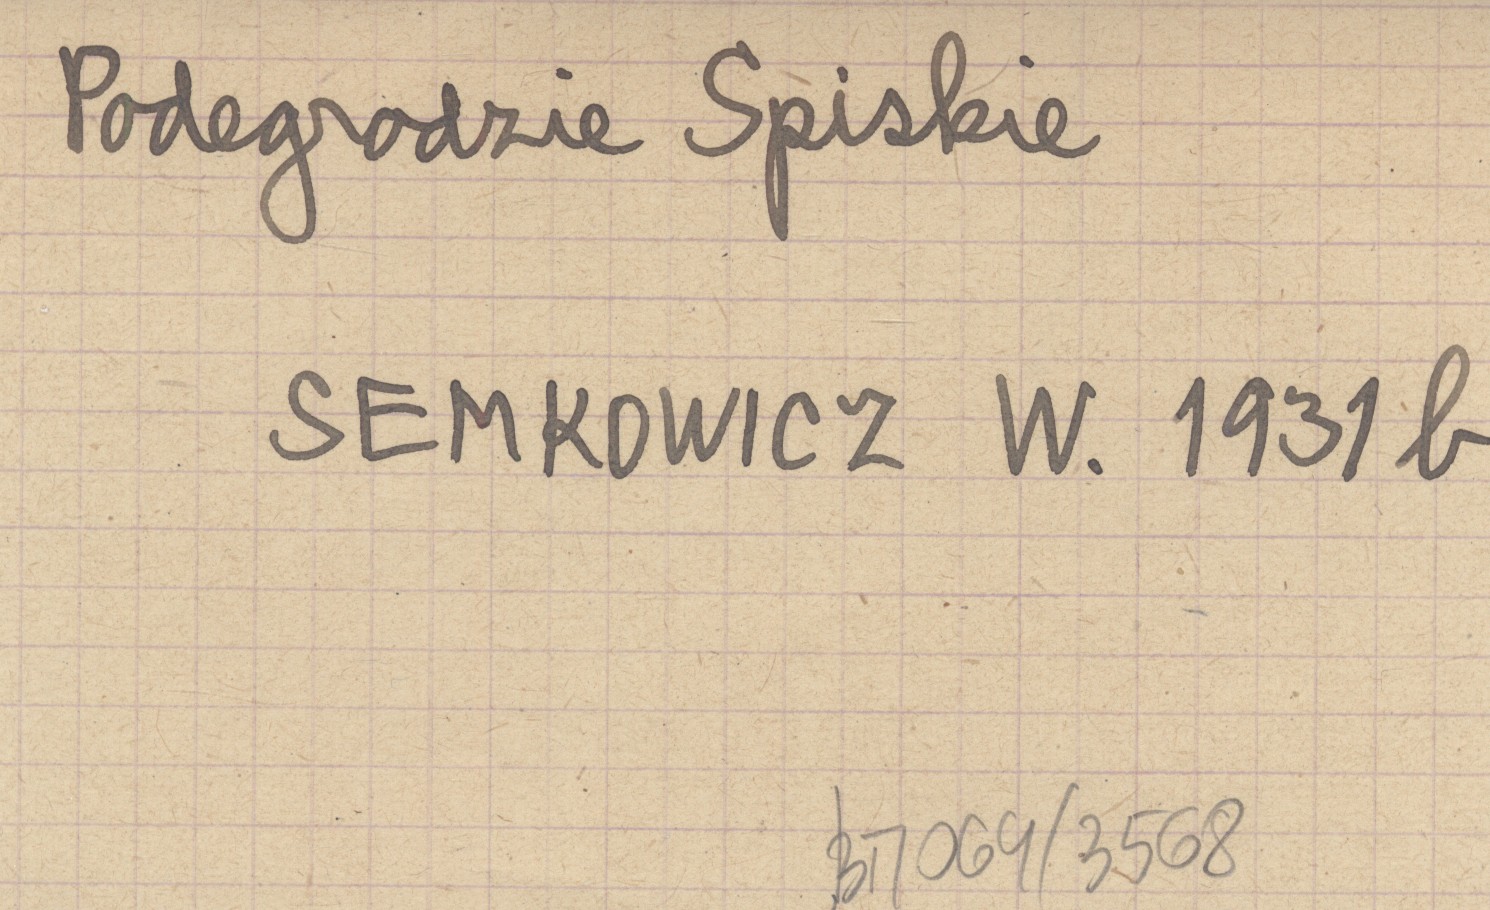 Podegrodzie Spiskie
SEMKOWICZ W. 1931 b
069/3568